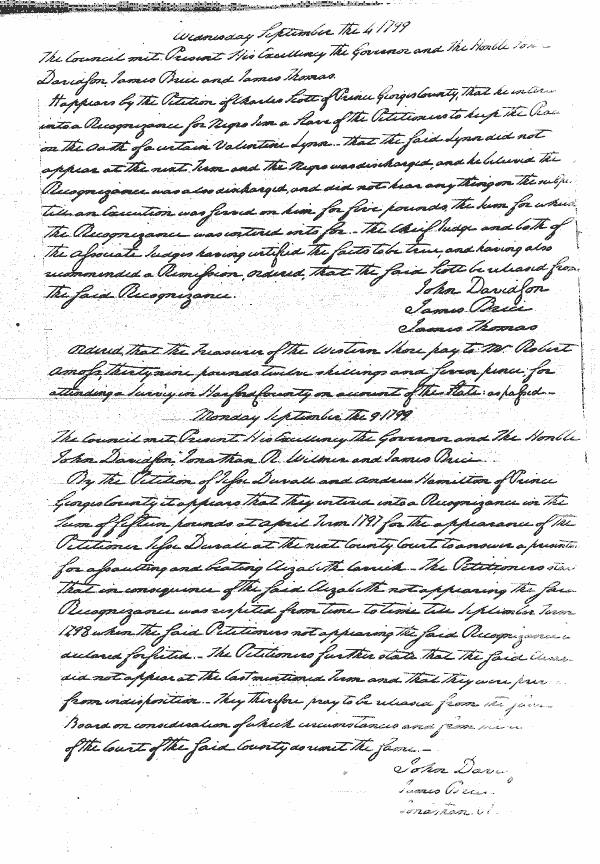 Wednesday September the 4 1799
The Council met. Present His Excellency the Governor and The Honble
Davidson, James Brice and James Thomas.
It appears by the Petition of Charles Scott of Prince Georges County, that he
into a Recognizance for Negro a Slave of the Petitioners to keep the
on the Oath of a certain Valentine Lynn. that the said Lynn did not
appear at the next Term and the Negro was discharged, and he believed the
Recognizance was also discharged, and did not hear any thing on the
till an Execution was served on him for five pounds, the sum for which
the Recognizance was entered into for. The Chief Judge and both of
the associate Judges having certified the facts to be true and having also
recommended a Remission, ordered, that the said Scott be released from
the said Recognizance.
John Davidson
James Brice
James Thomas
Ordered, that the Treasurer of the Western Shore pay to Mr. Robert
Amoss, thirty nine pounds twelve shillings and seven pence for
attending a Survey in Harford County on account of the State: as passed
Monday September the 9 1799
The Council met. Present His Excellency the Governor and The Honble
John Davidson, Jonathan R. Wilmer and James Brice
By the Petition of Jesse Duvall and Andrew Hamilton of Prince
Georges County it appears that they entered into a Recognizance in the
sum of fifteen pounds at April Term 1797 for the appearance of the
Petitioner Jesse Duvall at the next County Court to answer a
for assaulting and beating Elizabeth Carrick. The Petitioners
that in consequence of the said Elizabeth not appearing the said
Recognizance was respited from time to time till September Term
1798 when the said Petitioners not appearing the said
declared forfeited. The Petitioners further state that the said
did not appear at the last mentioned Term and that they were
from indisposition. They therefore pray to be released from the
Board on consideration of which circumstances and from
of the Court of the said County do remit the same.
John
James Brice
Jonathan